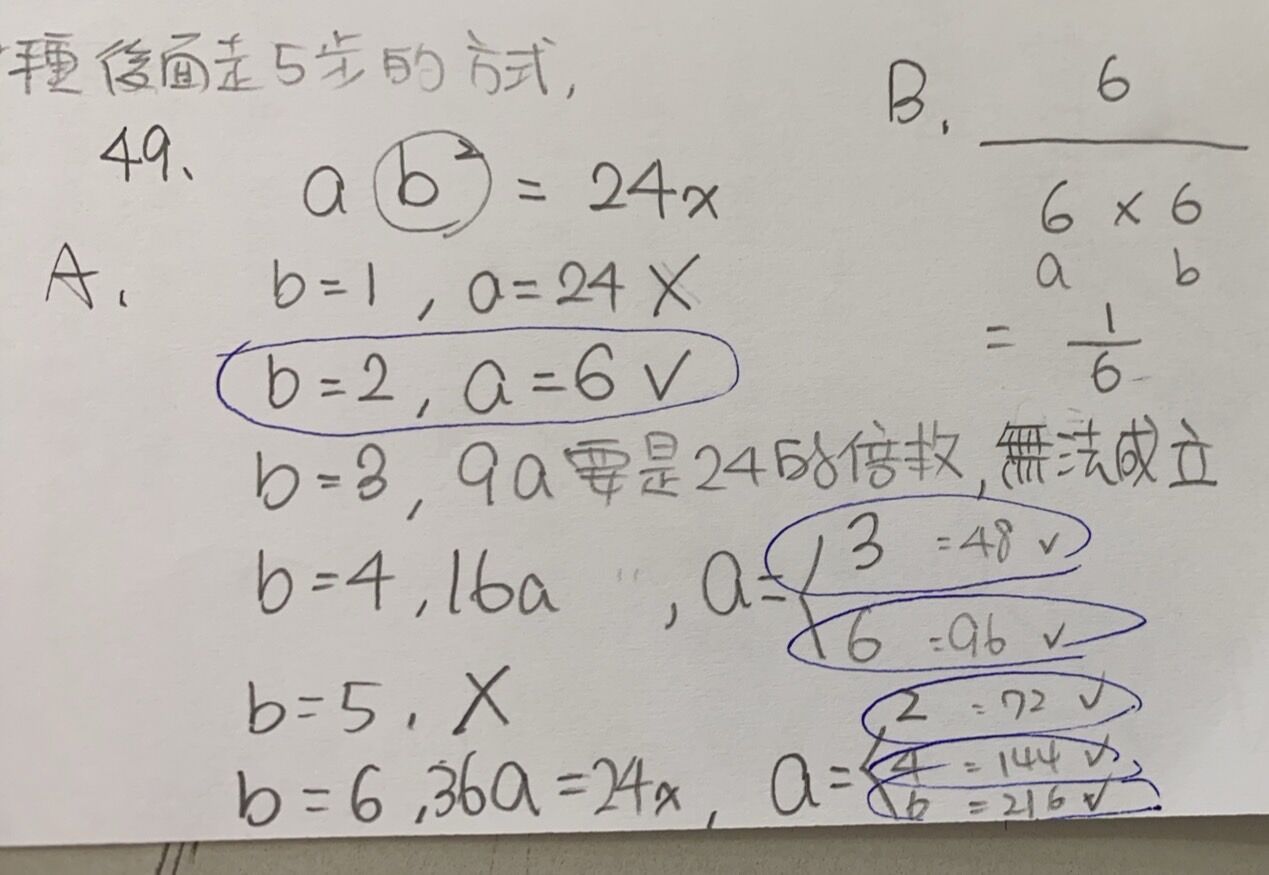 種後面走5步的方式,
49、 a b² = 24x
A. b=1, a=24 X
b=2, a=6 ✓
b=3, 9a要是24的倍數,無法成立
b=4, 16a 〃, a= 3 =48 ✓
6 =96 ✓
b=5. X
b=6, 36a=24x, a= 2 =72 ✓
4 =144 ✓
6 =216 ✓
B. 6
6 × 6
a b
= 1/6